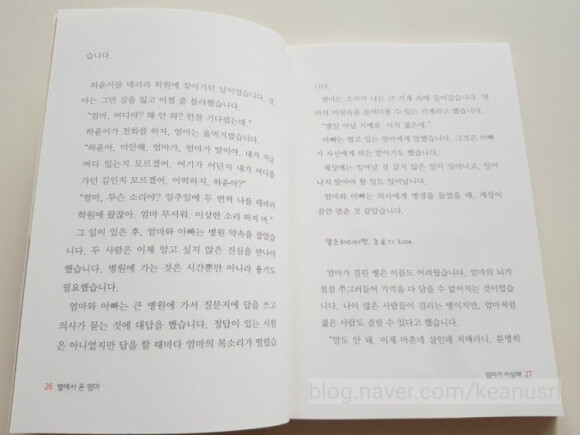 습니다.
하윤이를 데리러 학원에 찾아가던 날이었습니다. 엄
마는 그만 길을 잃고 어쩔 줄 몰라했습니다.
“엄마, 어디야? 왜 안 와? 한참 기다렸는데.”
하윤이가 전화를 하자, 엄마는 울먹거렸습니다.
“하윤아, 미안해. 엄마가, 엄마가 말이야. 내가 지금
어디 있는지 모르겠어. 여기가 어딘지 내가 어디를
가던 길인지 모르겠어. 어떡하지, 하윤아?”
“엄마, 무슨 소리야? 일주일에 두 번씩 나를 데리러
학원에 왔잖아. 엄마 무서워, 이상한 소리 하지 마.”
그 일이 있은 후, 엄마와 아빠는 병원 약속을 잡았습
니다. 두 사람은 이제 알고 싶지 않은 진실을 만나야
했습니다. 병원에 가는 것은 시간뿐만 아니라 용기도
필요했습니다.
엄마와 아빠는 큰 병원에 가서 질문지에 답을 쓰고
의사가 묻는 것에 대답을 했습니다. 정답이 있는 시험
은 아니었지만 답을 할 때마다 엄마의 목소리가 떨렸습
26 별에서 온 엄마
니다.
엄마는 소리가 나는 큰 기계 속에 들어갔습니다. 엄
마의 머릿속을 들여다볼 수 있는 기계라고 했습니다.
“별일 아닐 거예요. 아직 젊은데.”
아빠는 떨고 있는 엄마에게 말했습니다. 그것은 아빠
가 자신에게 하는 말이기도 했습니다.
세상에는 일어날 것 같지 않은 일이 일어나고, 일어
나지 말아야 할 일도 일어납니다.
엄마와 아빠는 의사에게 병명을 들었을 때, 세상이
잠깐 멈춘 것 같았습니다.
알츠하이머병, 초로기 치매
엄마가 걸린 병은 이름도 어려웠습니다. 엄마의 뇌가
점점 쭈그러들어 기억을 다 담을 수 없어지는 것이었습
니다. 나이 많은 사람들이 걸리는 병이지만, 엄마처럼
젊은 사람도 걸릴 수 있다고 했습니다.
“말도 안 돼. 이제 마흔네 살인데 치매라니. 분명히
엄마가 이상해 27
blog.naver.com/keanusrl